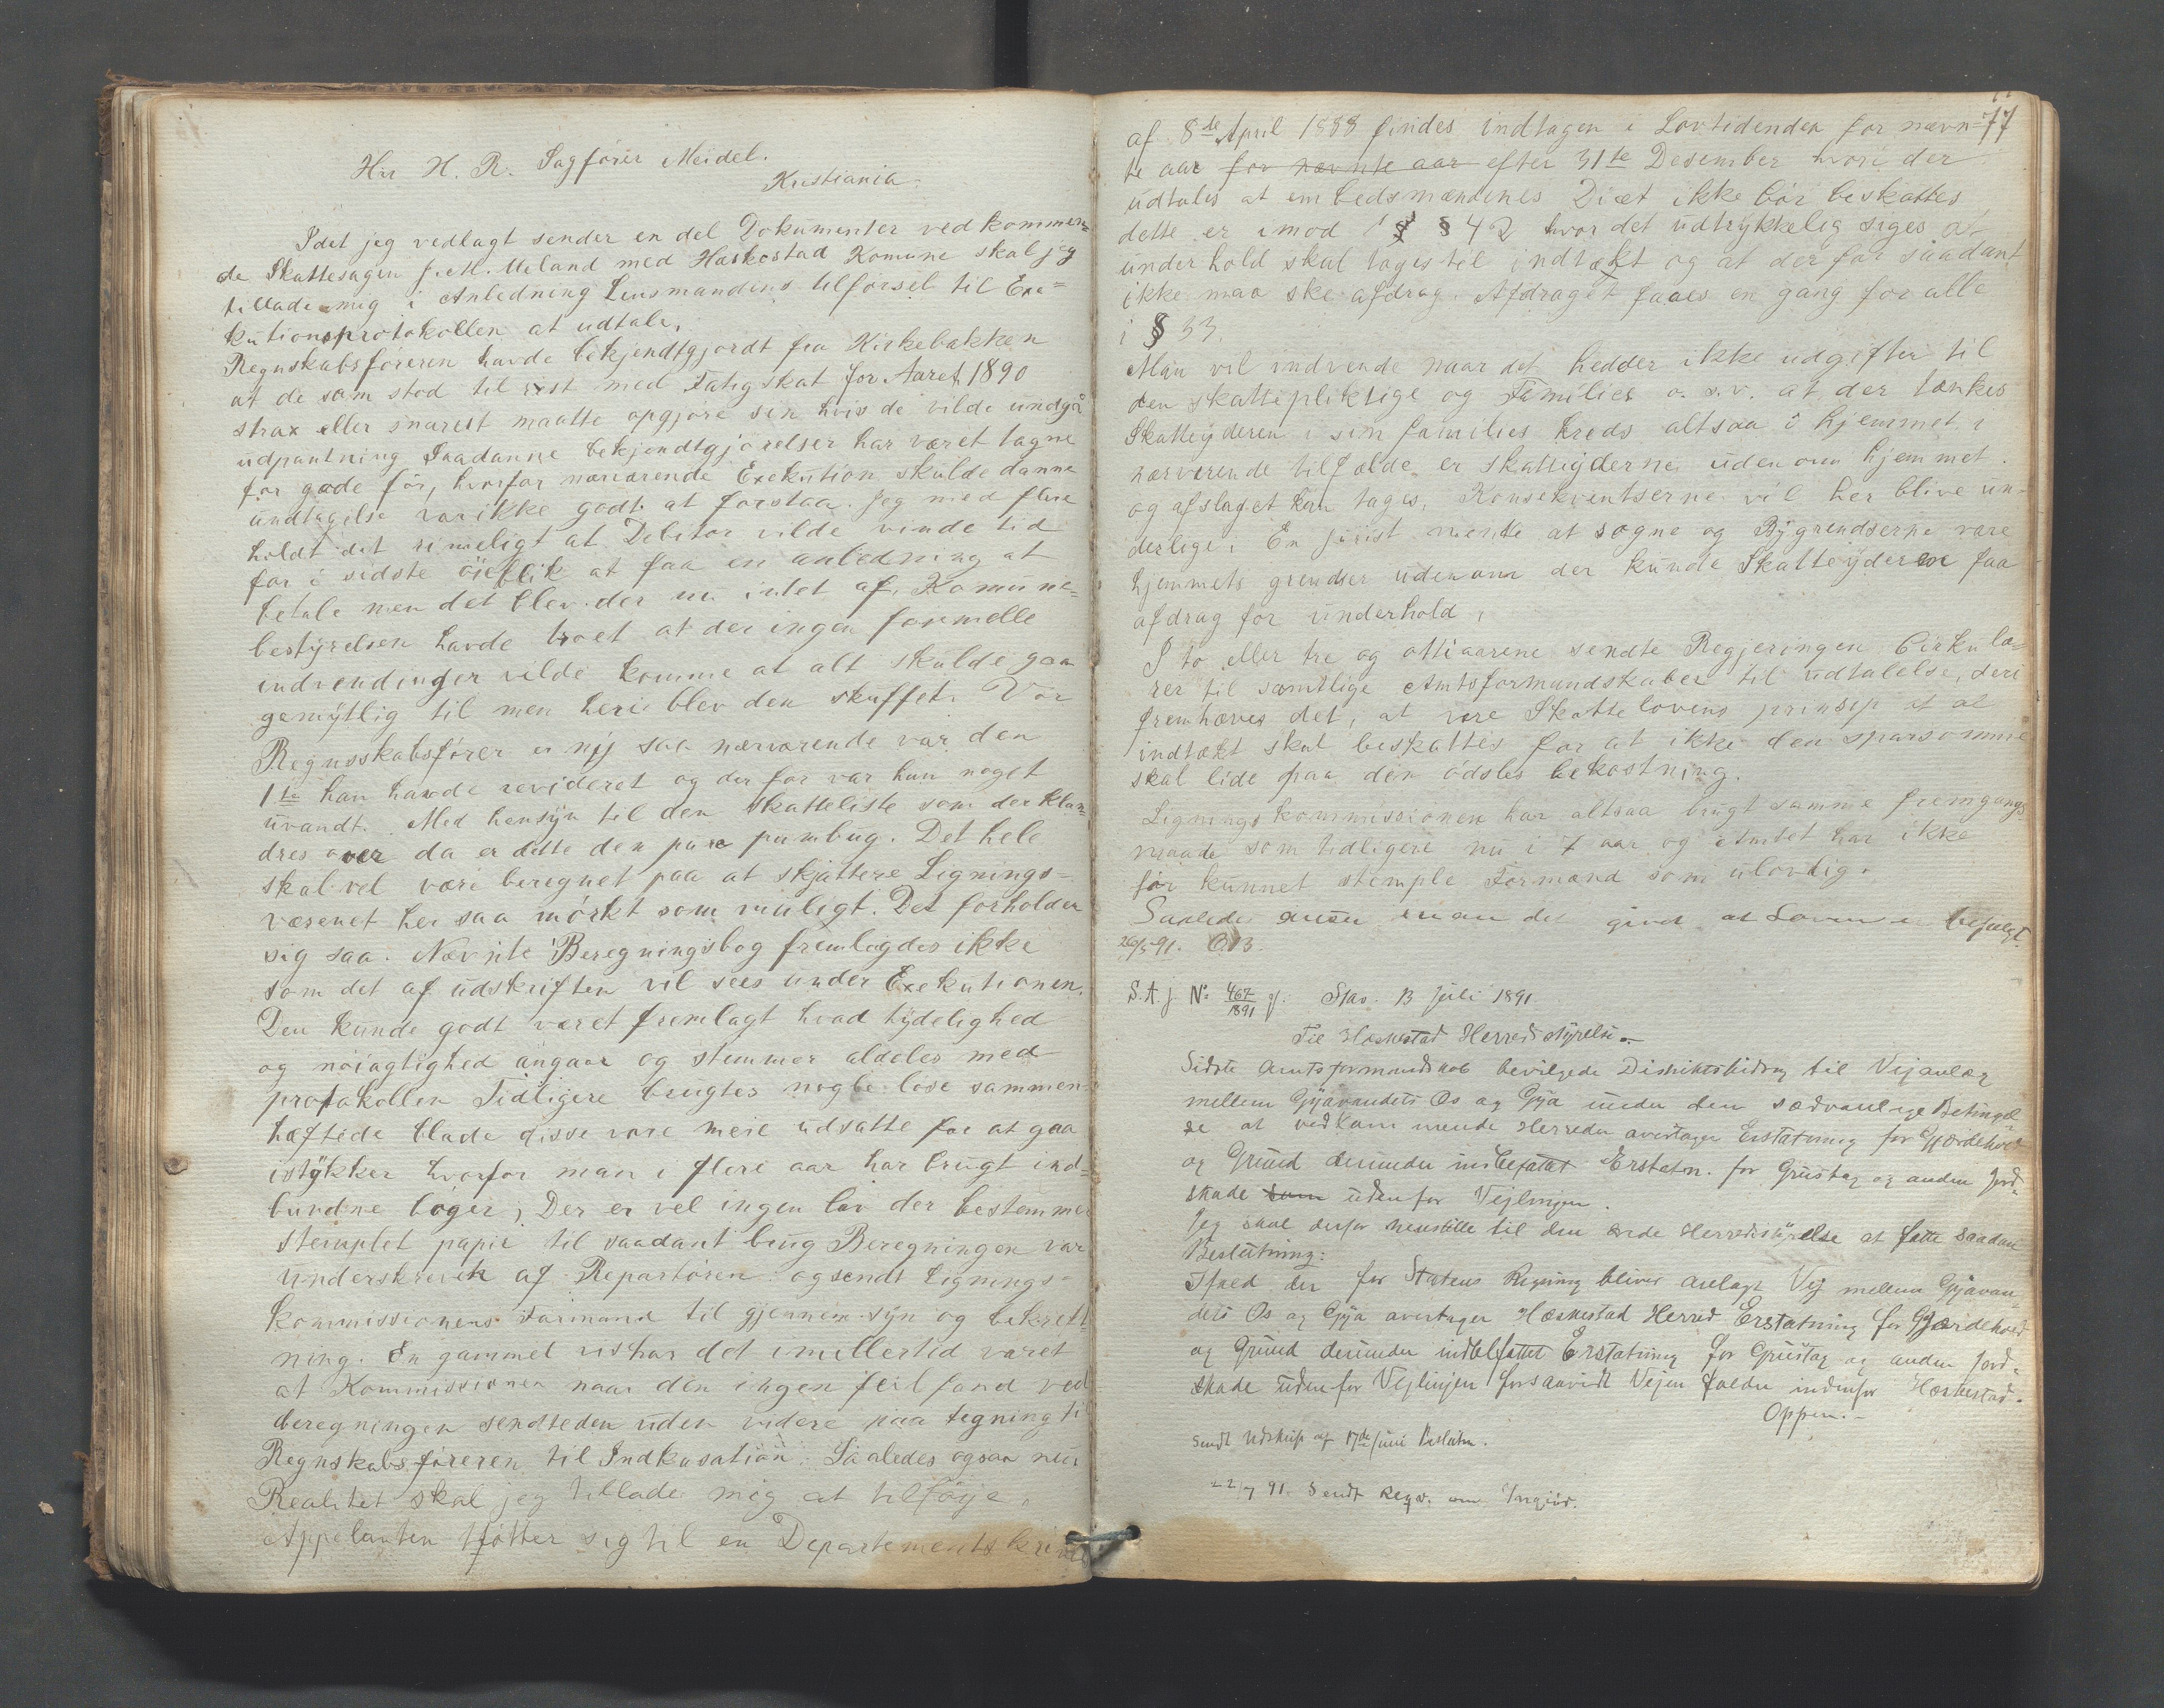 Hrr H. R. Sagfører Meidel.
Kristiania.
Idet jeg vedlagt sender en del Dokumenter vedkommen=
de Skattesagen J. M. Meland med Heskestad Komune skal jeg
tillade mig i Anledning Lensmandens tilførsel til Exe=
kutionsprotokollen at udtale,
Regnskabsføreren havde bekjendtgjordt fra Kirkebakken
at de som stod til rest med Fatigskat for Aaret 1890
strax eller snarest maatte opgjøre sin hvis de vilde undgå
udpantning Saadanne bekjendtgjørelser har været tagne
for gode før, hvorfor nærværende Exekution skulde danne
undtagelse var ikke godt at forstaa. Jeg med flere
holdt det rimeligt at Debitor vilde vinde tid
for i sidste øieblik at faa en anledning at
betale men det blev der nu intet af. Komune=
bestyrelsen havde troet at der ingen formelle
indvendinger vilde komme at alt skulde gaa
gemytlig til men heri blev den skuffet. Vor
Regnsskabsfører er ny saa nærværende var den
1ste han havde revideret og derfor var han noget
uvandt. Med hensyn til den skatteliste som der klan=
dres over da er dette den pure humbug. Det hele
skal vel være beregnet paa at skjattere Lignings=
væsenet her saa mørkt som muligt. Det forholder
sig saa. Nævnte Beregningsbog fremlagdes ikke
som det af udskriften vil sees under Exekutionen.
Den kunde godt været fremlagt hvad tydelighed
og nøiagtighed angaar og stemmer aldeles med
protokollen Tidligere brugtes nogle løse sammen-
hæftede blade disse vare mere udsatte for at gaa
istykker hvorfor man i flere aar har brugt ind=
bundne bøger; Der er vel ingen lov der bestemmer
stemplet papir til saadant brug Beregningen var
underskrevet af Repartøren og sendt Lignings=
kommissionens Formand til gjennemsyn og bekræft=
ning. En gammel vis har det imidlertid været
at Kommissionen naar den ingen feil fand ved
beregningen sendteden uden videre paa tegning til
Regnskabsføreren til Indkasation. Saaledes ogsaa nu.
Realitet skal jeg tillade mig at tilføje.
Appelanten støtter sig til en Departementsskrivel
77
af 8de April 1888 findes indtagen i Lovtidenden for nævn=
te aar for nævnte aar efter 31te Desember hvori der
udtales at embedsmændenes Diæt ikke bør beskattes
dette er imod § § 42 hvor det udtrykkelig siges at
underhold skal tages til indtækt og at der for saadant
ikke maa ske afdrag. Afdraget faaes en gang for alle
i § 33.
Man vil indvende naar det hedder ikke udgifter til
den skattepliktige og Families o. s. v. at der tænkes
Skatteyderen i sin families kreds altsaa i hjemmet i
nærværende tilfælde er skatteyderne udenom hjemmet.
og afslaget kan tages, Konsekventserne vil her blive un-
derlige. En jurist mente at sogne og Bygrendserne vare
hjemmets grendser udenom der kunde Skatteyderne faa
afdrag for underhold.
I to eller tre og ottiaarene sendte Regjeringen Cirkulæ=
rer til samtlige Amtsformandskaber til udtalelse, deri
fremhæves det, at vore Skattelovens prinsip at al
indtækt skal beskattes for at ikke den sparsomme
skal lide paa den ødsles bekostning.
Ligningskommissionen har altsaa brugt samme fremgangs
maade som tidligere nu i 7 aar og Amtet har ikke
før kunnet stemple Formand som ulovlig.
Saaledes anser man det givet at Loven er befulgt.
26/5 91. O.B.
S. A. J. No 467/1891 Stav. 13 Juli 1891
Til Heskestad Herredsstyrelse.
Sidste Amtsformandskab bevilgede Distriktsbidrag til Vejanlæg
mellem Gyavandets Os og Gya under den sædvanlige Betingel=
se at vedkommende Herreder overtager Erstatning for Gjærdehold
og Grund derunder indbefatet Erstatn. for Grustag og anden Jord=
skade som udenfor Vejlinjen.
Jeg skal derfor henstille til den ærede Herredsstyrelse at fatte saadan
Beslutning:
Ifald der for Statens Regning bliver anlagt Vej mellem Gyavan=
dets Os og Gya overtager Heskestad Herred Erstatning for Gjærdehold
og Grund derunder indbefattet Erstatning for Grustag og anden Jord=
skade udenfor Vejlinjen forsaavidt Vejen falder indenfor Heskestad.
Oppen.
Sendt Udskrift af 17de Juni Beslutn.
22/7 91. Sendt Regn. om